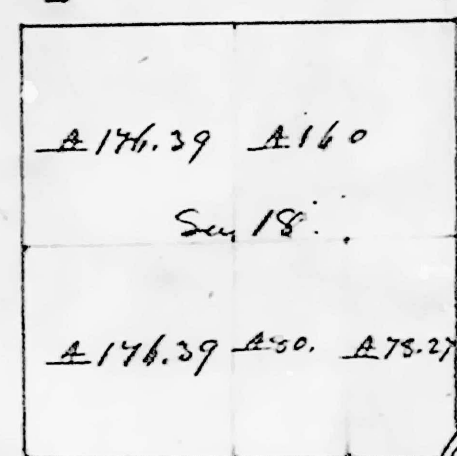 A 176.39 A 160
Sec. 18.
A 176.39 A 80. A 78.27